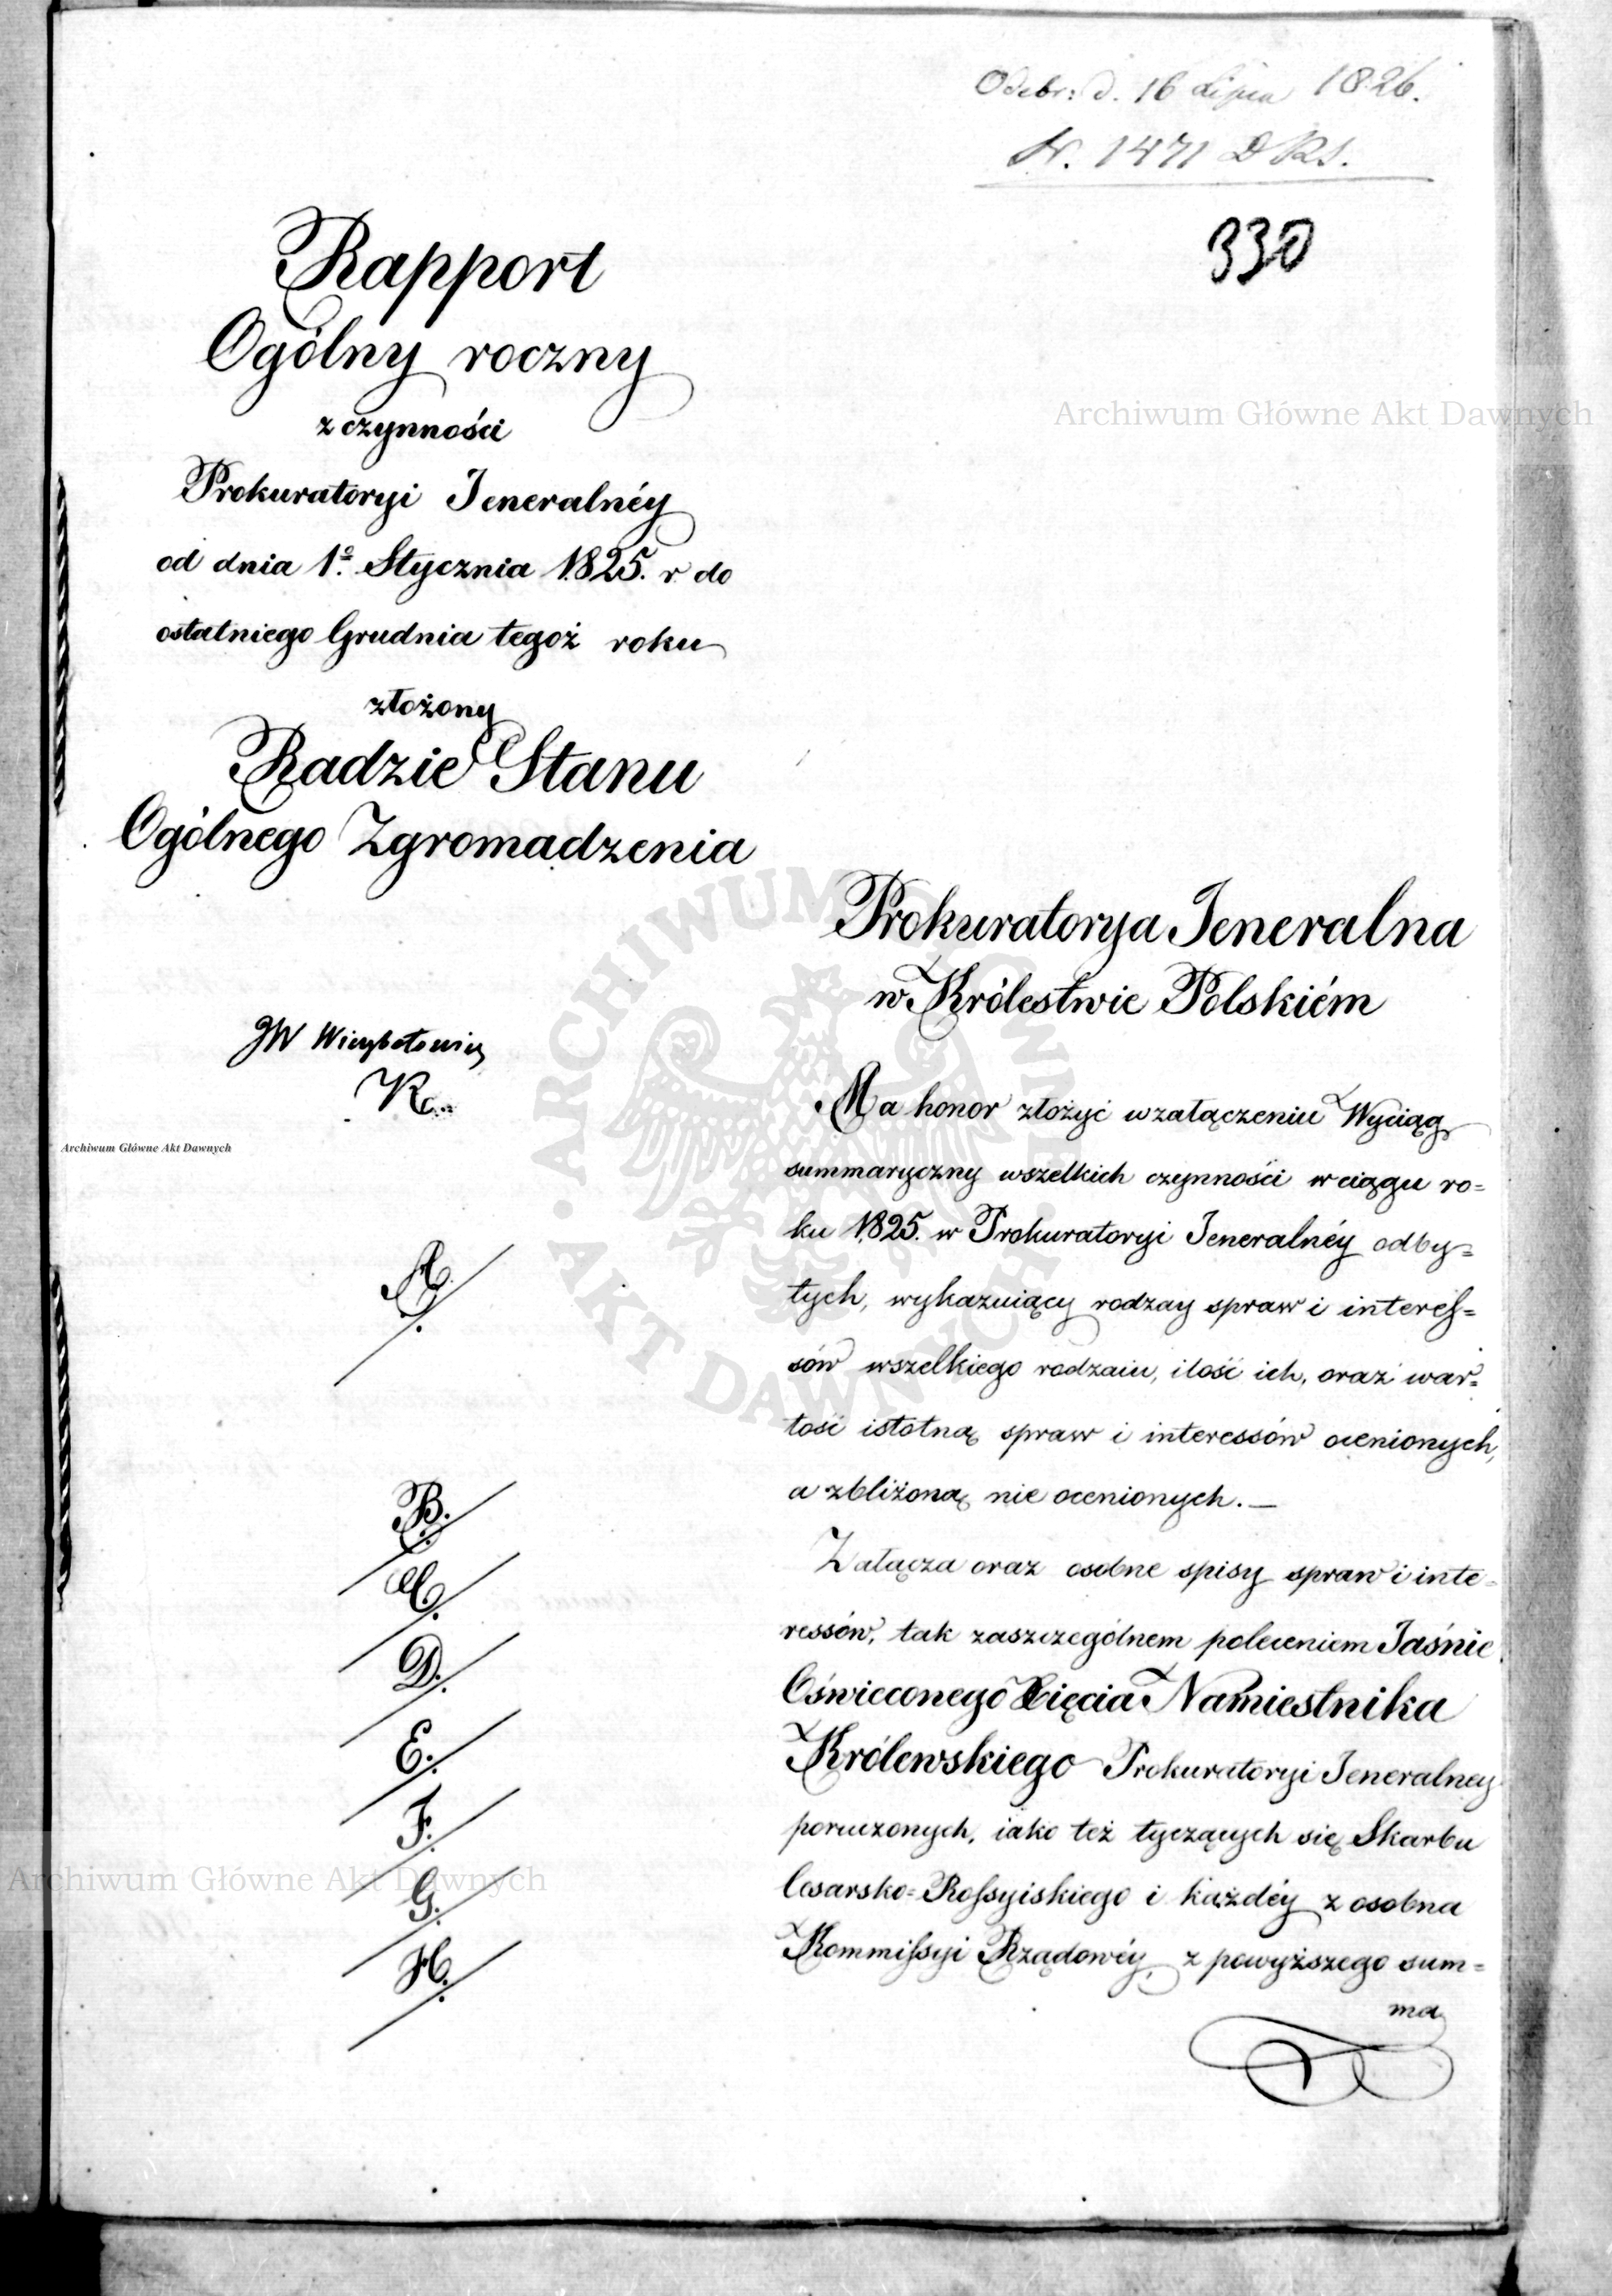 Odebr: d. 16 Lipca 1826.
N. 1471 D RS.
330
Rapport
Ogólny roczny
z czynności
Prokuratoryi Jeneralnéy
od dnia 1º Stycznia 1825. r do
ostatniego Grudnia tegoż roku
złożony
Radzie Stanu
Ogólnego Zgromadzenia
JW
Prokuratorya Jeneralna
w Królestwie Polskiém
Ma honor złożyć w załączeniu Wyciąg
summaryczny wszelkich czynności w ciągu ro=
ku 1825. w Prokuratoryi Jeneralnéy odby=
tych, wykazuiący rodzay spraw i interes=
sów wszelkiego rodzaiu, ilość ich, oraz war=
tość istotną spraw i interessów ocenionych,
a zbliżoną nie ocenionych. —
Załącza oraz osobne spisy spraw i inte=
ressów, tak zaszczególnem poleceniem Jaśnie
Oświeconego Xięcia Namiestnika
Królewskiego Prokuratoryi Jeneralney
poruczonych, iako też tyczących się Skarbu
Cesarsko=Rossyiskiego i każdéy z osobna
Kommissyi Rządowéy, z powyższego sum=
ma
A.
B.
C.
D.
E.
F.
G.
H.
Archiwum Główne Akt Dawnych
Archiwum Główne Akt Dawnych
Archiwum Główne Akt Dawnych
ARCHIWUM GŁÓWNE AKT DAWNYCH